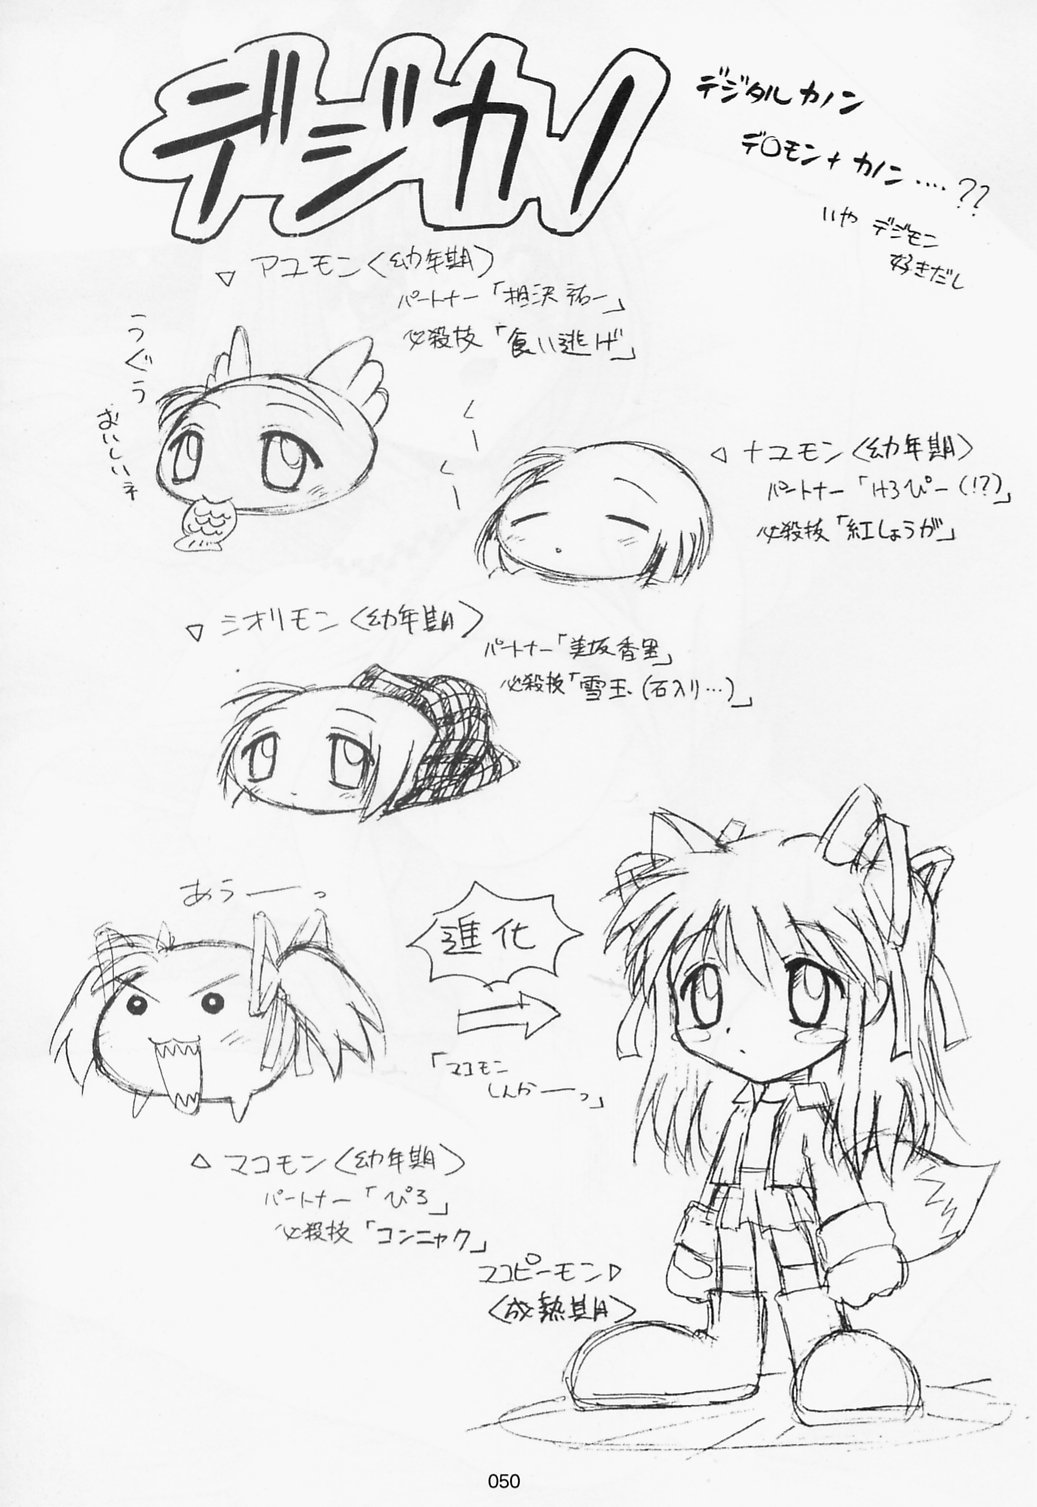 デジカノ
デジタルカノン
デ〇モン+カノン....??
いや デジモン
好きだし
▽ アユモン〈幼年期〉
パートナー「相沢祐一」
必殺技「食い逃げ」
うぐぅ
おいしいネ
くー
くー
◁ ナユモン〈幼年期〉
パートナー「けろぴー(!?)」
必殺技「紅しょうが」
▽ シオリモン〈幼年期〉
パートナー「美坂香里」
必殺技「雪玉(石入り…)」
あうーーっ
進化
「マコモン
しんかーーっ」
△ マコモン〈幼年期〉
パートナー「ぴろ」
必殺技「コンニャク」
マコピーモン▷
〈成熟期〉
050